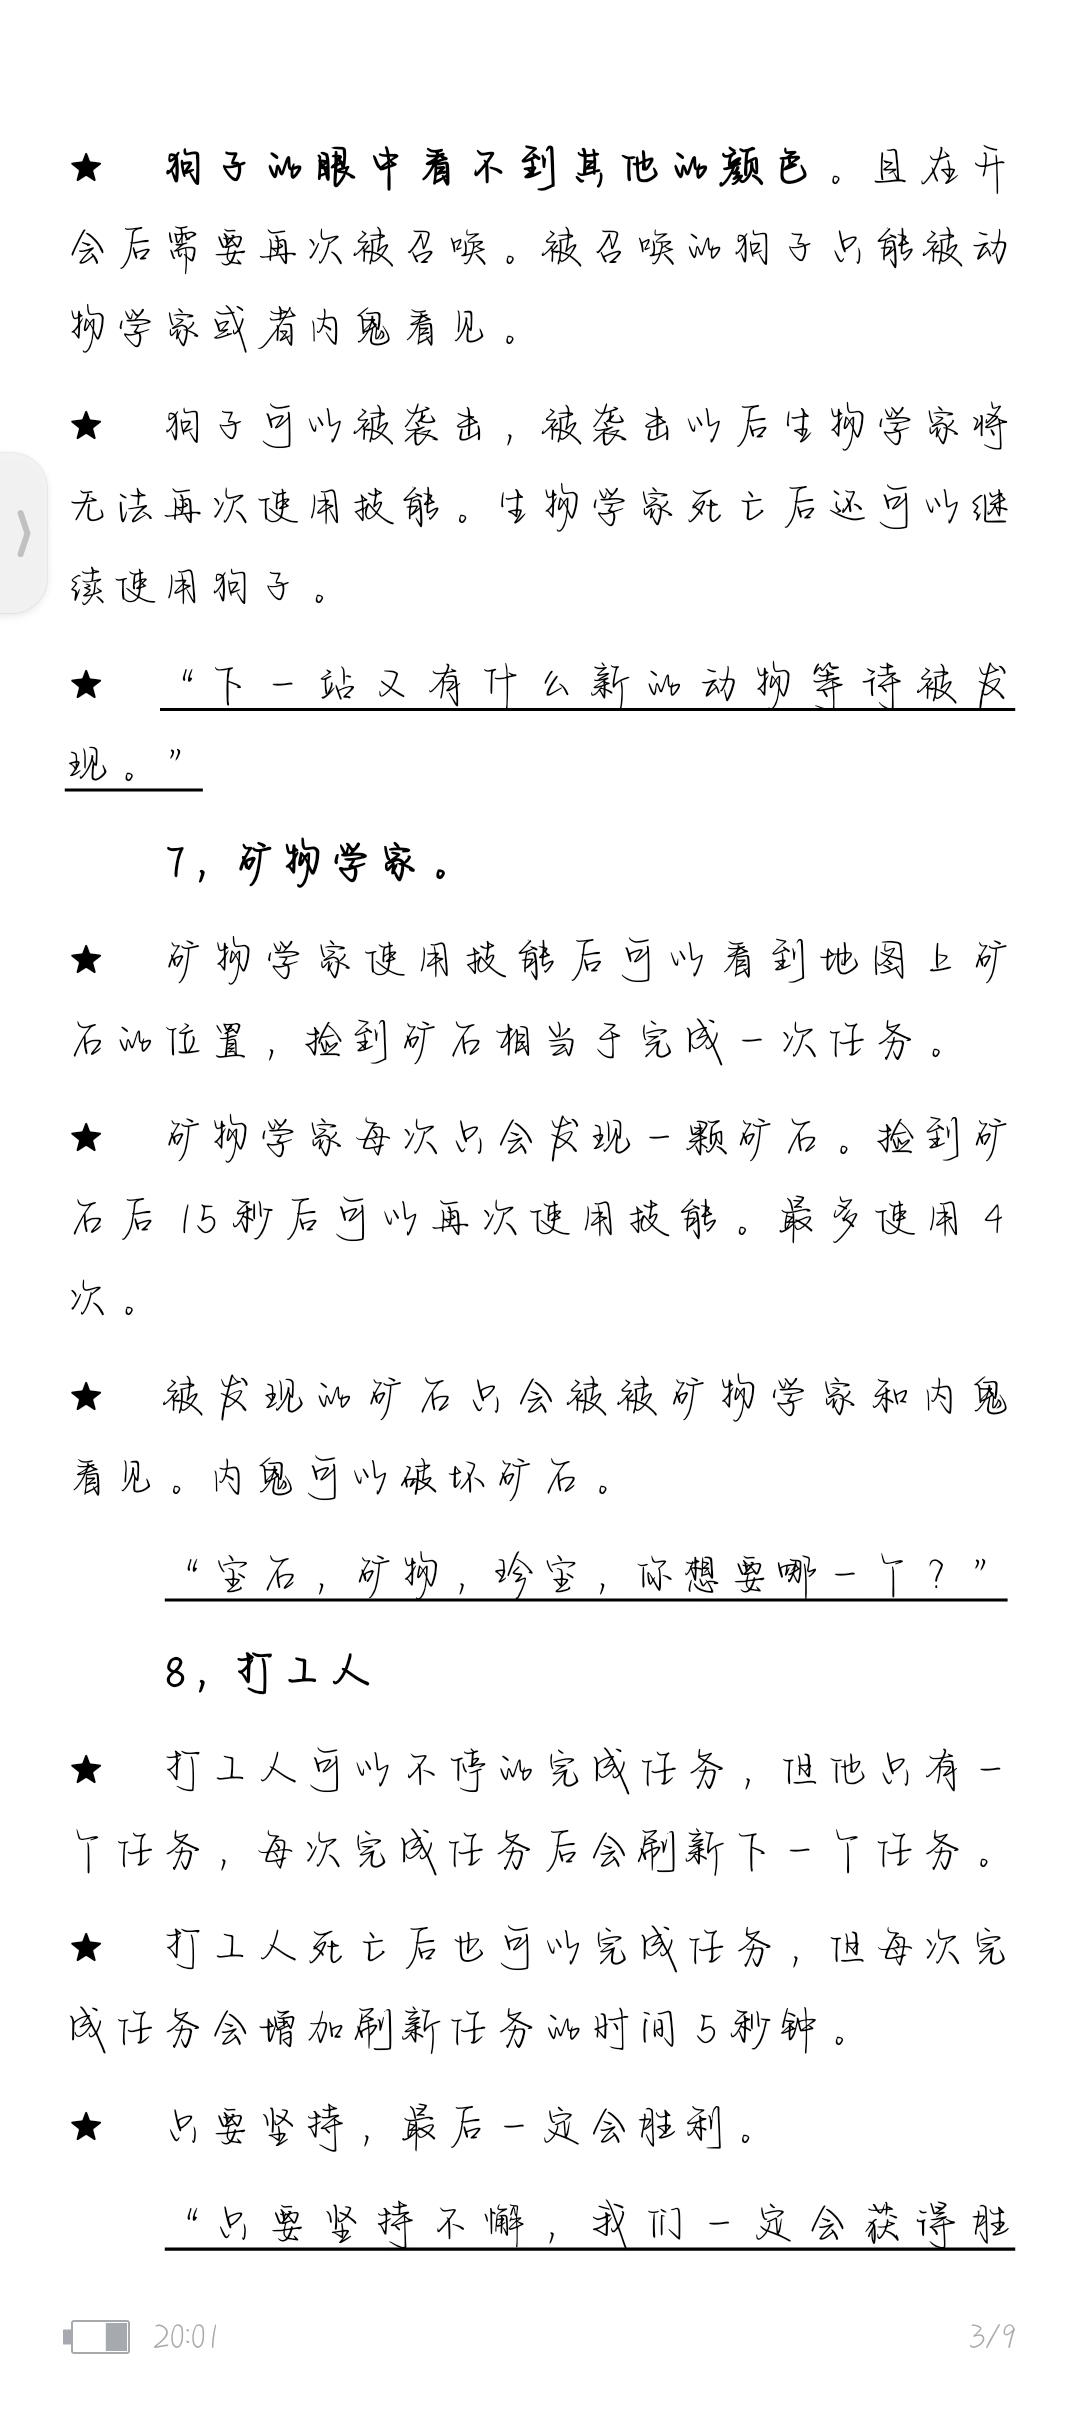 ★ 狗子的眼中看不到其他的颜色。且在开
会后需要再次被召唤。被召唤的狗子只能被动
物学家或者内鬼看见。
★ 狗子可以被袭击，被袭击以后生物学家将
无法再次使用技能。生物学家死亡后还可以继
续使用狗子。
★ “下一站又有什么新的动物等待被发
现。”
7，矿物学家。
★ 矿物学家使用技能后可以看到地图上矿
石的位置，捡到矿石相当于完成一次任务。
★ 矿物学家每次只会发现一颗矿石。捡到矿
石后15秒后可以再次使用技能。最多使用4
次。
★ 被发现的矿石只会被被矿物学家和内鬼
看见。内鬼可以破坏矿石。
“宝石，矿物，珍宝，你想要哪一个？”
8，打工人
★ 打工人可以不停的完成任务，但他只有一
个任务，每次完成任务后会刷新下一个任务。
★ 打工人死亡后也可以完成任务，但每次完
成任务会增加刷新任务的时间5秒钟。
★ 只要坚持，最后一定会胜利。
“只要坚持不懈，我们一定会获得胜
20:01 3/9